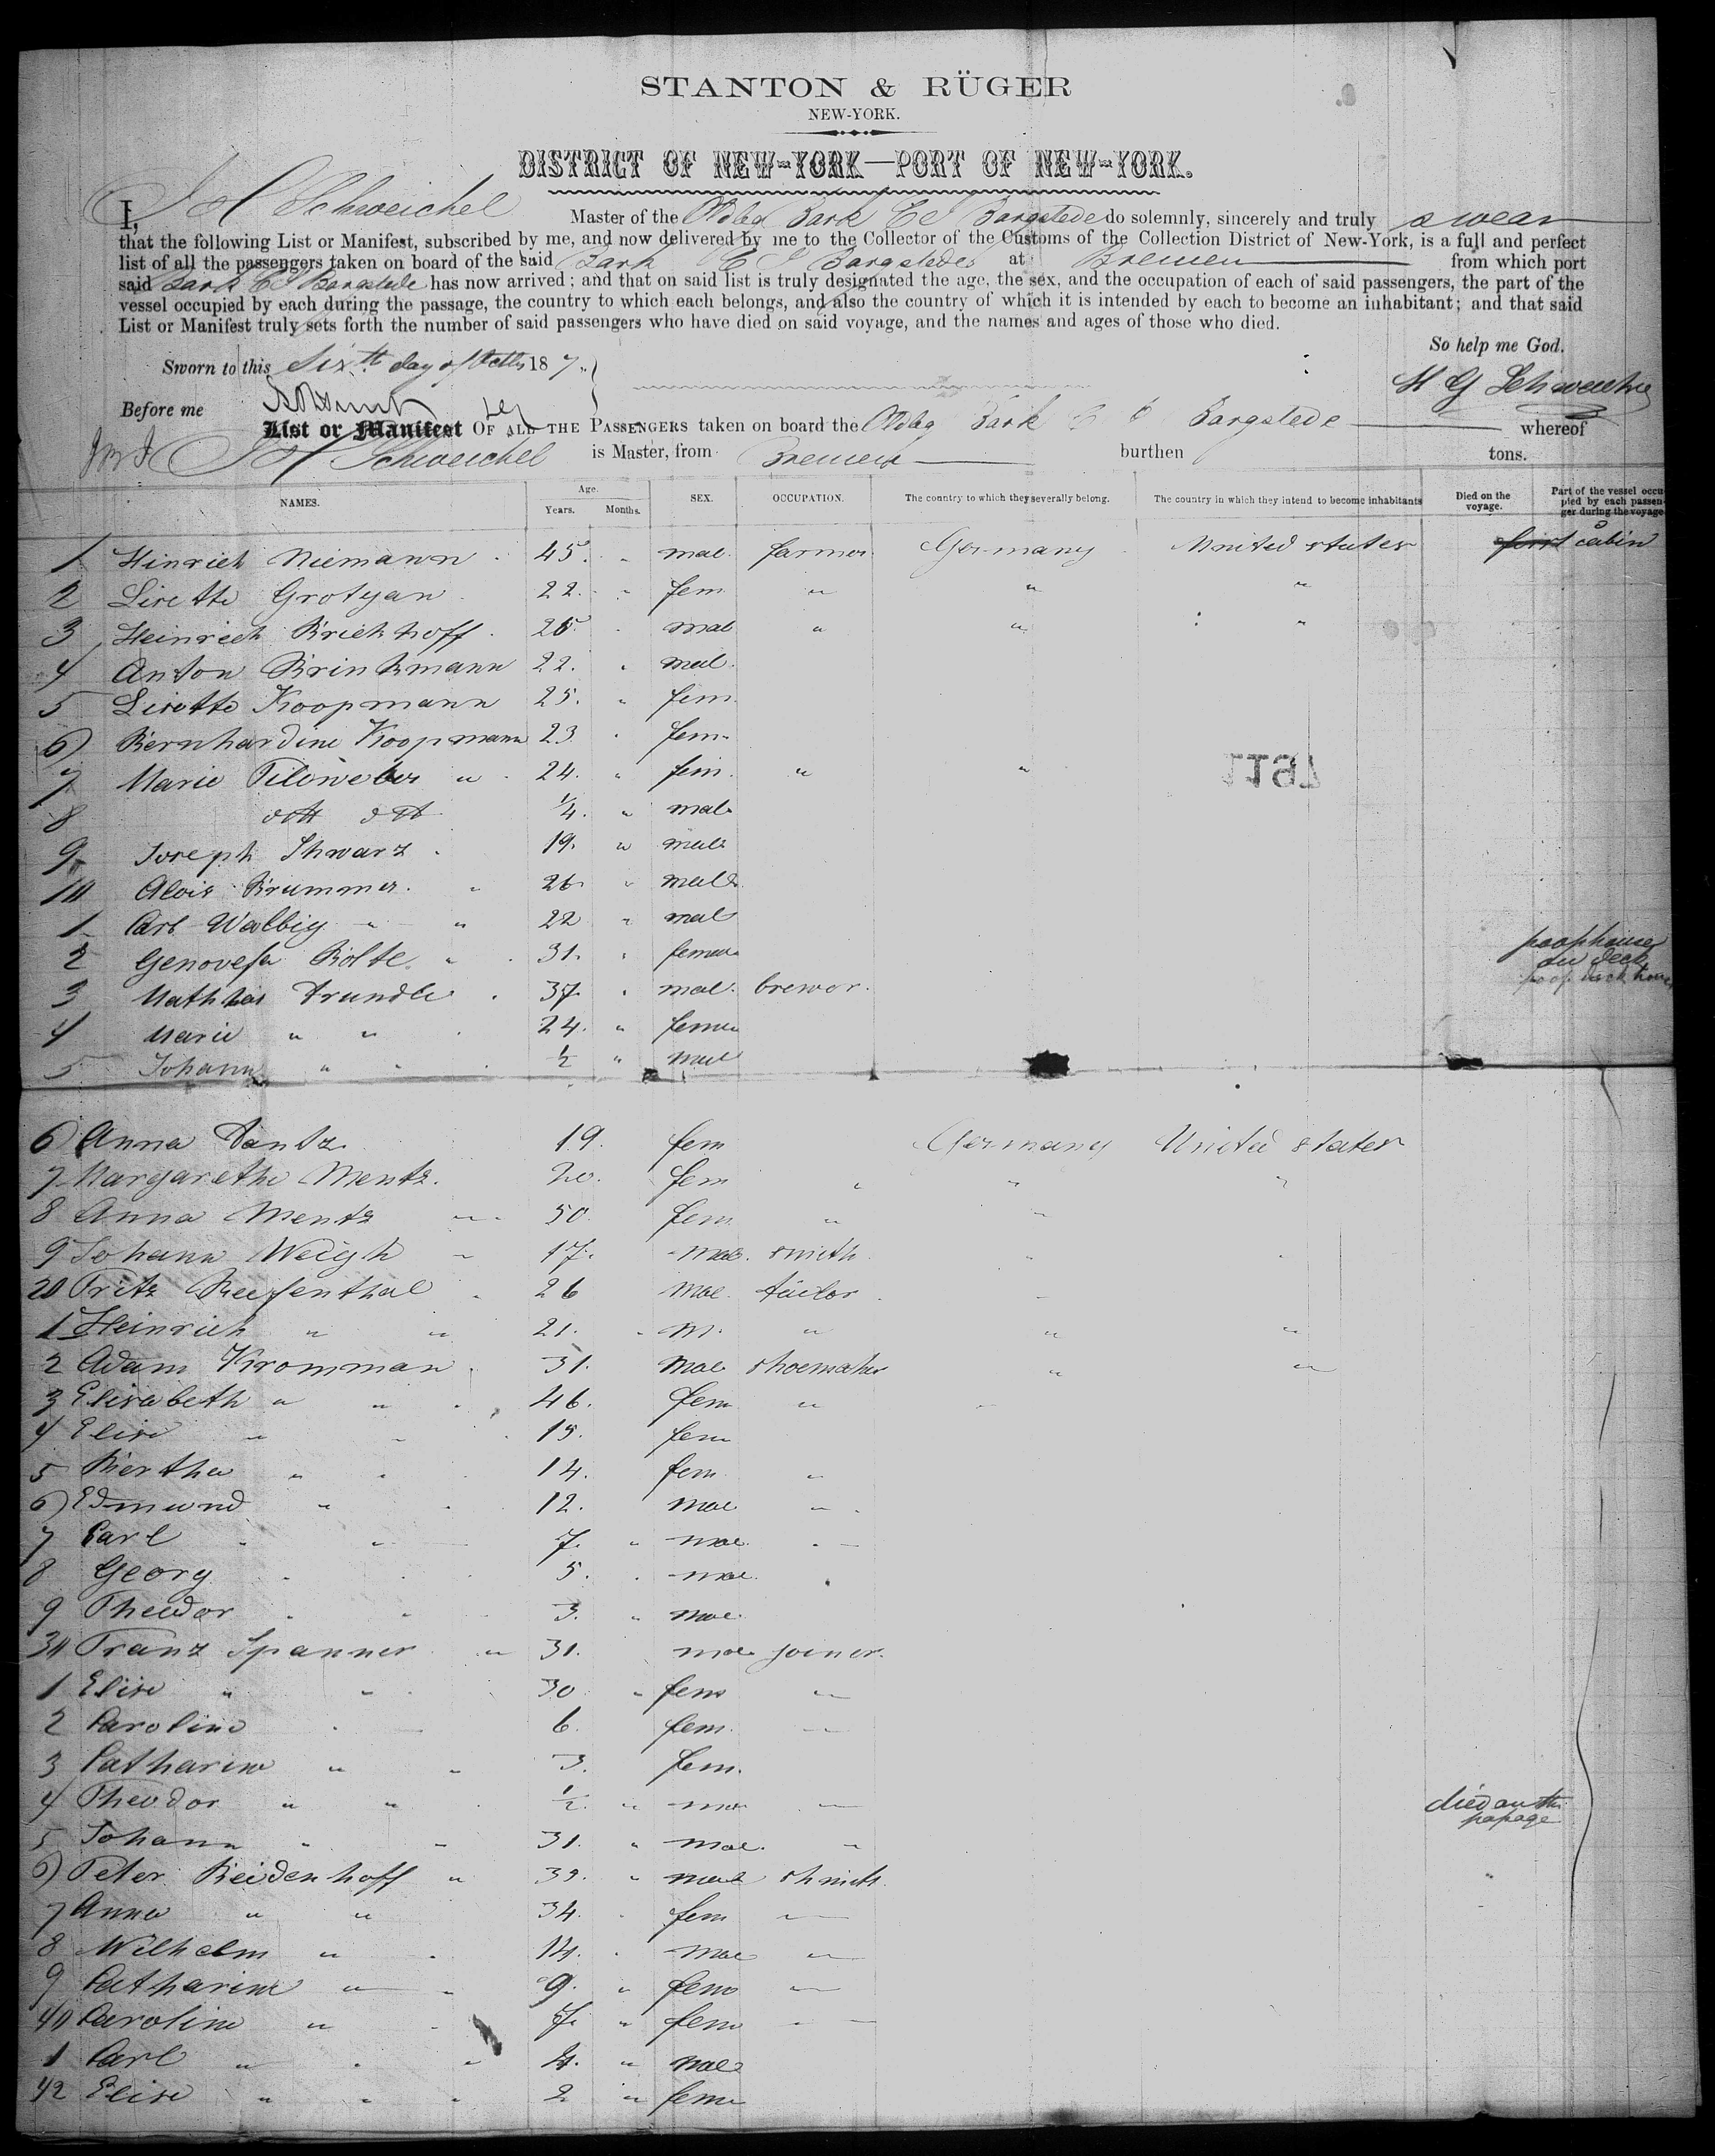 STANTON & RÜGER
NEW-YORK.
DISTRICT OF NEW-YORK—PORT OF NEW-YORK.
I, J H Schweichel Master of the Oldbg Bark Bargstede do solemnly, sincerely and truly swear
that the following List or Manifest, subscribed by me, and now delivered by me to the Collector of the Customs of the Collection District of New-York, is a full and perfect
list of all the passengers taken on board of the said Bark Bargstede at Bremen from which port
said Bark Bargstede has now arrived; and that on said list is truly designated the age, the sex, and the occupation of each of said passengers, the part of the
vessel occupied by each during the passage, the country to which each belongs, and also the country of which it is intended by each to become an inhabitant; and that said
List or Manifest truly sets forth the number of said passengers who have died on said voyage, and the names and ages of those who died.
So help me God.
Sworn to this Sixth day of 187
Before me
List or Manifest OF ALL THE PASSENGERS taken on board the Oldbg Bark Bargstede whereof
J H Schweichel is Master, from Bremen burthen tons.
NAMES. Age. Years. Months. SEX. OCCUPATION. The country to which they severally belong. The country in which they intend to become inhabitants Died on the voyage. Part of the vessel occupied by each passenger during the voyage
1 Hinrich Niemann 45 " mal. farmer Germany United states first cabin
2 Lisette Grotyan 22 " fem " " "
3 Heinrich Brickhoff 26 mal " " "
4 Anton Brinkmann 22. " mal.
5 Lisette Koopmann 25. " fem.
6 Bernhardine Koopmann 23 fem.
7 Marie " 24. " fem. " "
8 dtt dtt 1/4. " mal.
9 Joseph Shwarz 19. " male
10 Alois Brummer 26 " male
1 Carl Walbig " " 22 " mal
2 Genovefa Bolte " 31. " female
3 Mathias Trundle 37. " mal. brewer.
4 Marie " " 24. " female
5 Johann " " 1/2 " male
poophouse
on deck
poop deck house
1197
6 Anna Dantz 19. fem Germany United states
7 Margarethe Mentz. 20. fem " " "
8 Anna Mentz " 50. fem. " "
9 Johann Weigh " 17. mal. smith
20 Fritz Reefenthal 26 mal. tailor
1 Heinrich " " 21. m. " " "
2 Adam Kromman 31. mal shoemaker " "
3 Elisabeth " " 46. fem "
4 Elise " " 15. fem
5 Bertha " " 14. fem "
6 Edmund " 12. mal "
7 Carl " 7. " mal.
8 Georg 5. mal.
9 Theodor " 3. " mal.
30 Franz Spanner " 31. mal joiner.
1 Elise " " 30 " fem "
2 Caroline 6. fem. "
3 Catharine " " 3. fem.
4 Theodor " " 1/2. " mal " died on the
passage
5 Johann " " 31. " mal. "
6 Peter Beidenhoff " 39. " male shmith.
7 Anna " " 34. fem "
8 Wilhelm " 14. mal "
9 Catharine " " 9. " fem "
40 Caroline " 7. " fem "
1 Carl " " 4. " male
42 Elise " " " 2 " fem